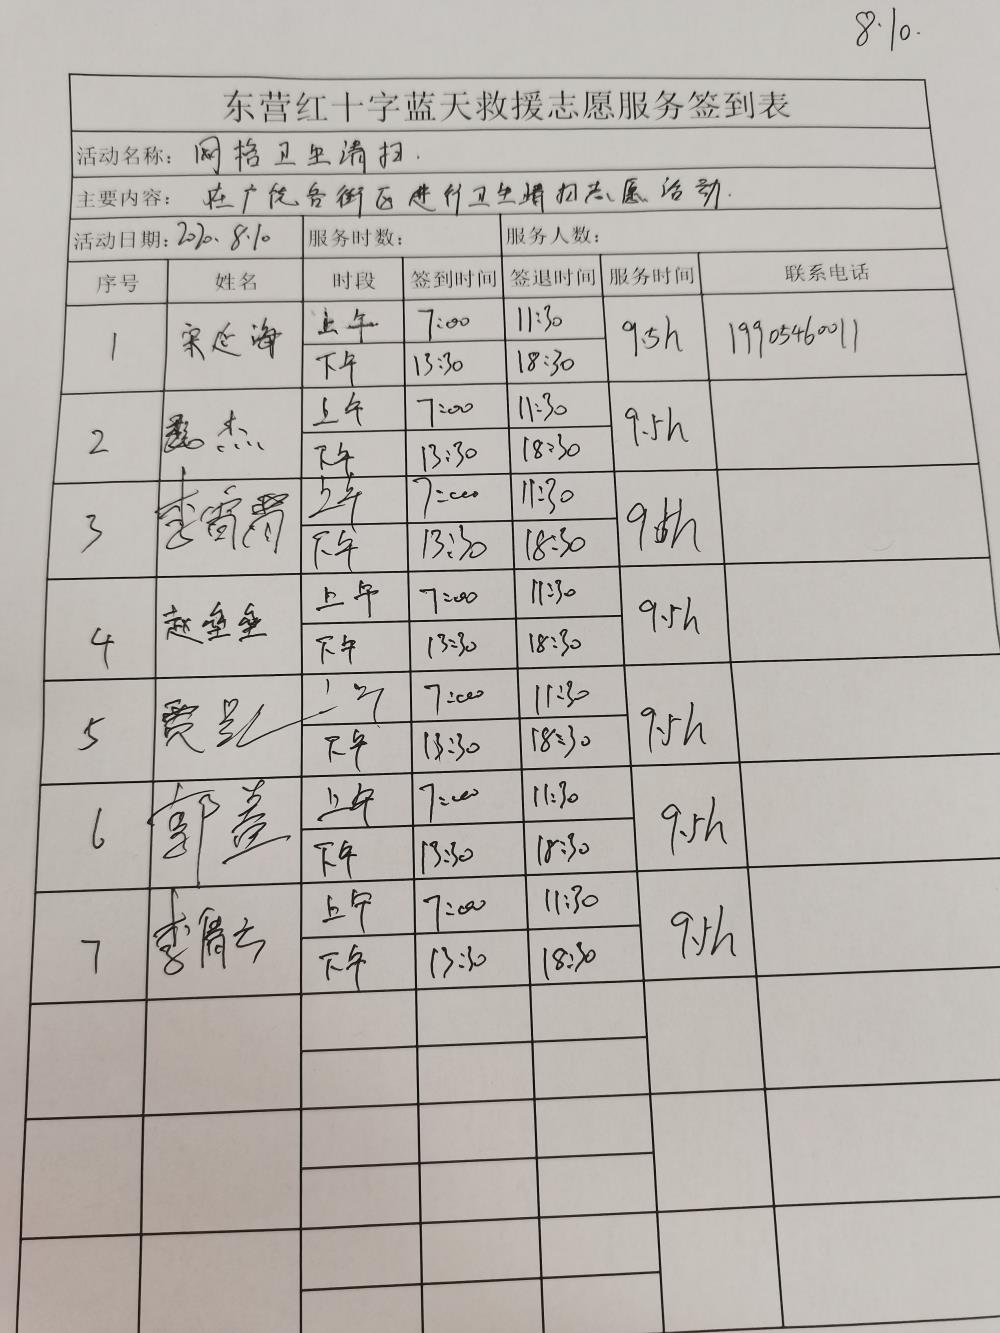 8.10.
东营红十字蓝天救援志愿服务签到表
活动名称: 网格卫生清扫.
主要内容: 在广饶各街区进行卫生清扫志愿活动.
活动日期: 2020.8.10 服务时数: 服务人数:
序号 姓名 时段 签到时间 签退时间 服务时间 联系电话
1 宋延海 上午 7:00 11:30 9.5h 19905460011
下午 13:30 18:30
2 杰 上午 7:00 11:30 9.5h
下午 13:30 18:30
3 李 上午 7:00 11:30 9.5h
下午 13:30 18:30
4 赵垒垒 上午 7:00 11:30 9.5h
下午 13:30 18:30
5 贾 上午 7:00 11:30 9.5h
下午 13:30 18:30
6 郭 上午 7:00 11:30 9.5h
下午 13:30 18:30
7 李倩云 上午 7:00 11:30 9.5h
下午 13:30 18:30